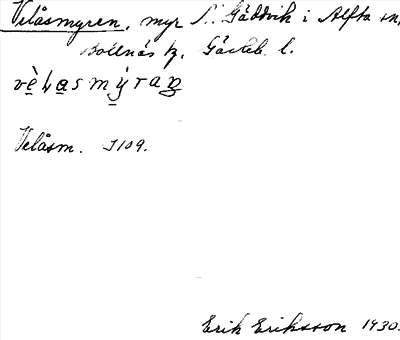 Velåsmyren, myr i Gäddvik i Alfta sn,
Bollnäs tg. Gävleb. l.
vèլas mýran
Velåsm. J109.
Erik Eriksson 1930.